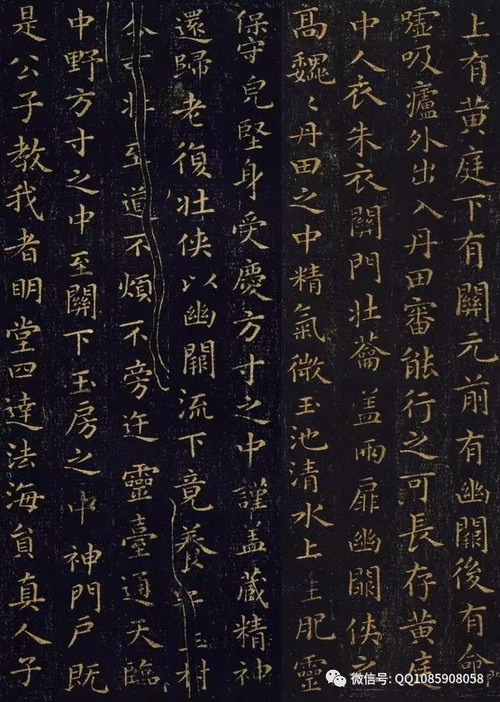 上有黄庭下有關元前有幽闕後有命
嘘吸廬外出入丹田審能行之可長存黄庭
中人衣朱衣關門壮籥盖兩扉幽闕俠之
高巍〻丹田之中精氣微玉池清水上生肥靈
保守皃堅身受慶方寸之中謹盖藏精神
還歸老復壮俠以幽闕流下竟養子玉树
令可壮至道不煩不旁迕靈臺通天臨
中野方寸之中至關下玉房之中神門户既
是公子教我者明堂四達法海員真人子
微信号: QQ1085908058